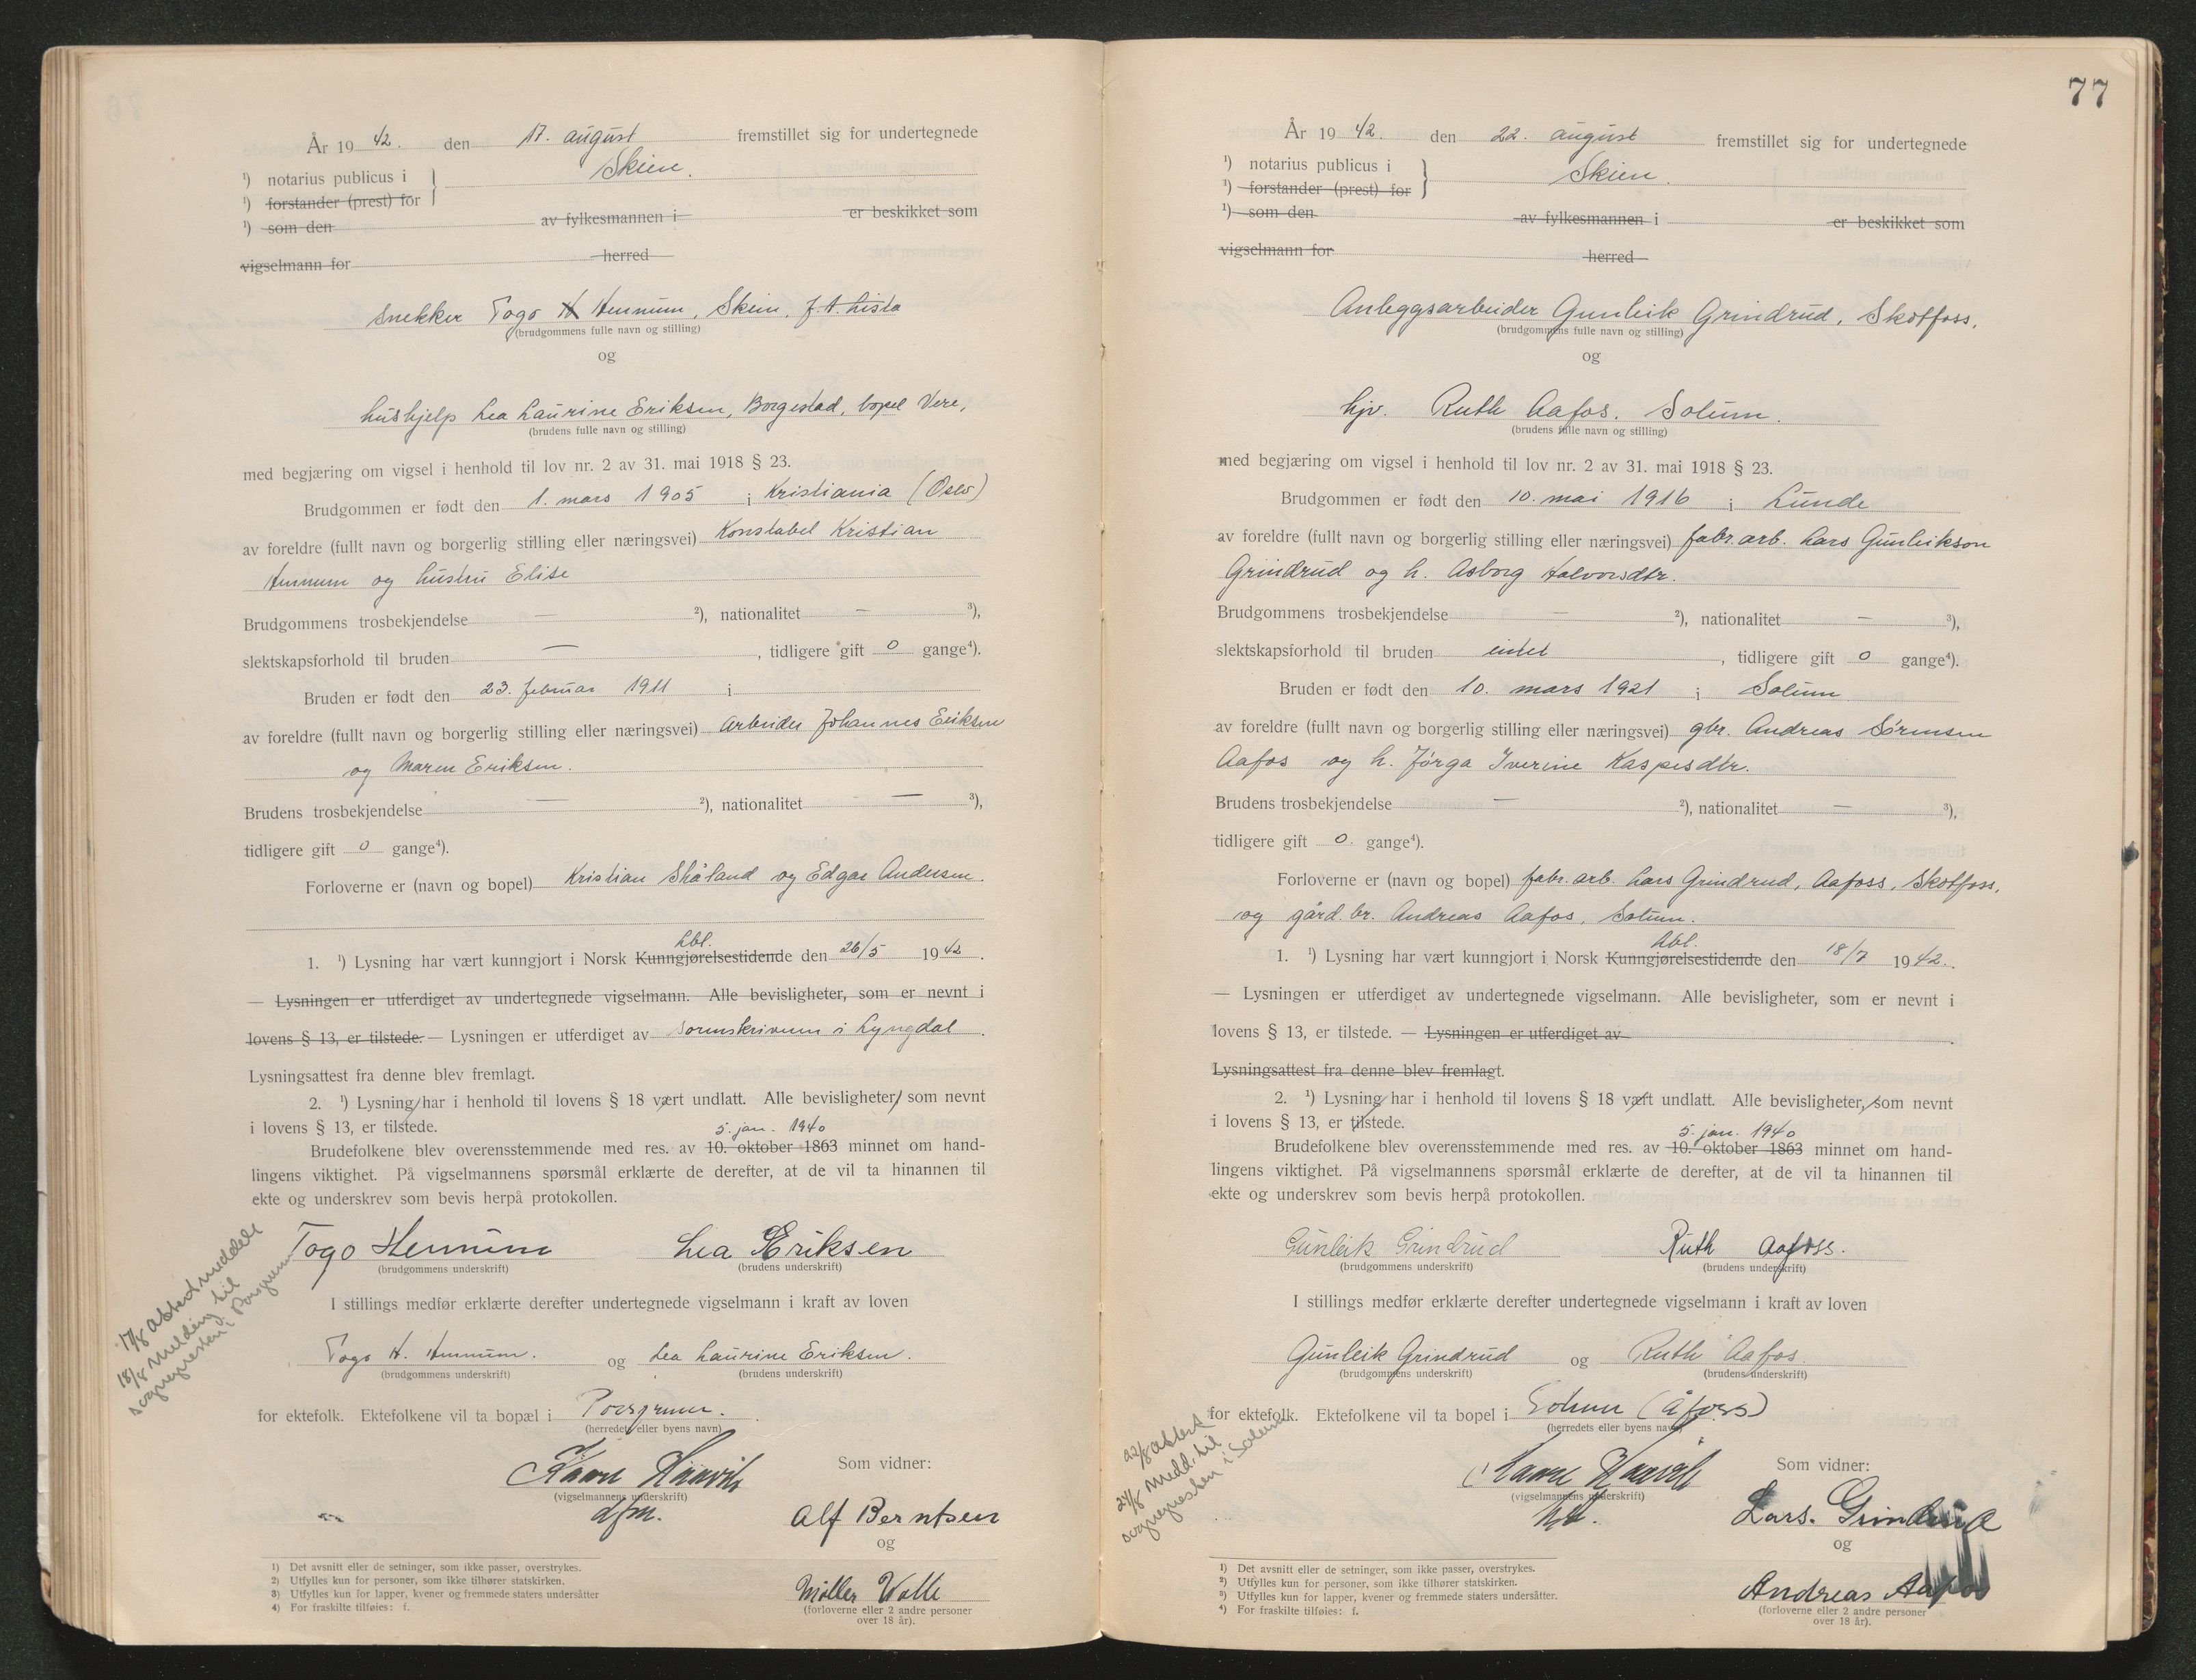 År 19 42. den 17. august fremstillet sig for undertegnede
¹) notarius publicus i Skien.
¹) forstander (prest) for
¹) som den av fylkesmannen i er beskikket som
vigselmann for herred
Snekker Togo H Hennum, Skien, f.t. Lista
(brudgommens fulle navn og stilling)
og
hushjelp Lea Laurine Eriksen, Borgestad, bopel Vere,
(brudens fulle navn og stilling)
med begjæring om vigsel i henhold til lov nr. 2 av 31. mai 1918 § 23.
Brudgommen er født den 1. mars 1905 i Kristiania (Oslo)
av foreldre (fullt navn og borgerlig stilling eller næringsvei) Konstabel Kristian
Hennum og hustru Elise
Brudgommens trosbekjendelse — ²), nationalitet — ³),
slektskapsforhold til bruden — , tidligere gift 0 gange⁴).
Bruden er født den 23. februar 1911 i
av foreldre (fullt navn og borgerlig stilling eller næringsvei) Arbeider Johannes Eriksen
og Maren Eriksen.
Brudens trosbekjendelse — ²), nationalitet — ³),
tidligere gift 0 gange⁴).
Forloverne er (navn og bopel) Kristian Skåland og Edgar Andersen.
lbl.
1. ¹) Lysning har vært kunngjort i Norsk Kunngjørelsestidende den 26/5 1942.
— Lysningen er utferdiget av undertegnede vigselmann. Alle bevisligheter, som er nevnt i
lovens § 13, er tilstede. — Lysningen er utferdiget av sorenskriveren i Lyngdal.
Lysningsattest fra denne blev fremlagt.
2. ¹) Lysning har i henhold til lovens § 18 vært undlatt. Alle bevisligheter, som nevnt
i lovens § 13, er tilstede.
5. jan. 1940
Brudefolkene blev overensstemmende med res. av 10. oktober 1863 minnet om hand-
lingens viktighet. På vigselmannens spørsmål erklærte de derefter, at de vil ta hinannen til
ekte og underskrev som bevis herpå protokollen.
Togo Hennum Lea Eriksen
(brudgommens underskrift) (brudens underskrift)
17/8 attest meddelt
18/8 melding til
sognepresten i Porsgrunn
I stillings medfør erklærte derefter undertegnede vigselmann i kraft av loven
Togo H. Hennum. og Lea Laurine Eriksen.
(brudgommens underskrift) (brudens underskrift)
for ektefolk. Ektefolkene vil ta bopæl i Porsgrunn.
(herredets eller byens navn)
Som vidner:
(vigselmannens underskrift)
dfm.
Alf Berntsen
og
Møller Watle
(forloverne eller 2 andre personer
over 18 år).
1) Det avsnitt eller de setninger, som ikke passer, overstrykes.
2) Utfylles kun for personer, som ikke tilhører statskirken.
3) Utfylles kun for lapper, kvener og fremmede staters undersåtter
4) For fraskilte tilføies: f.
77
År 19 42. den 22. august fremstillet sig for undertegnede
¹) notarius publicus i Skien.
¹) forstander (prest) for
¹) som den av fylkesmannen i er beskikket som
vigselmann for herred
Anleggsarbeider Gunleik Grindrud, Skotfoss.
(brudgommens fulle navn og stilling)
og
hjv. Ruth Aafos. Solum.
(brudens fulle navn og stilling)
med begjæring om vigsel i henhold til lov nr. 2 av 31. mai 1918 § 23.
Brudgommen er født den 10. mai 1916 i Lunde
av foreldre (fullt navn og borgerlig stilling eller næringsvei) fabr. arb. Lars Gunleikson
Grindrud og h. Asborg Halvorsdtr.
Brudgommens trosbekjendelse — ²), nationalitet — ³),
slektskapsforhold til bruden intet , tidligere gift 0 gange⁴).
Bruden er født den 10. mars 1921 i Solum
av foreldre (fullt navn og borgerlig stilling eller næringsvei) gbr. Andreas Sørensen
Aafos og h. Jørga Iverine Kaspersdtr.
Brudens trosbekjendelse — ²), nationalitet — ³),
tidligere gift 0. gange⁴).
Forloverne er (navn og bopel) fabr. arb. Lars Grindrud, Aafoss, Skotfoss,
og gård.br. Andreas Aafos, Solum.
lbl.
1. ¹) Lysning har vært kunngjort i Norsk Kunngjørelsestidende den 18/7 1942.
— Lysningen er utferdiget av undertegnede vigselmann. Alle bevisligheter, som er nevnt i
lovens § 13, er tilstede. — Lysningen er utferdiget av
Lysningsattest fra denne blev fremlagt.
2. ¹) Lysning har i henhold til lovens § 18 vært undlatt. Alle bevisligheter, som nevnt
i lovens § 13, er tilstede.
5. jan. 1940
Brudefolkene blev overensstemmende med res. av 10. oktober 1863 minnet om hand-
lingens viktighet. På vigselmannens spørsmål erklærte de derefter, at de vil ta hinannen til
ekte og underskrev som bevis herpå protokollen.
Gunleik Grindrud Ruth Aafoss.
(brudgommens underskrift) (brudens underskrift)
I stillings medfør erklærte derefter undertegnede vigselmann i kraft av loven
Gunleik Grindrud og Ruth Aafos.
(brudgommens underskrift) (brudens underskrift)
22/8 attest
24/8 medd. til
sognepresten i Solum
for ektefolk. Ektefolkene vil ta bopel i Solum (Åfoss)
(herredets eller byens navn)
Som vidner:
(vigselmannens underskrift)
Lars. Grindrud
og
Andreas Aafos
(forloverne eller 2 andre personer
over 18 år).
¹) Det avsnitt eller de setninger, som ikke passer, overstrykes.
²) Utfylles kun for personer, som ikke tilhører statskirken.
³) Utfylles kun for lapper, kvener og fremmede staters undersåtter.
⁴) For fraskilte tilføies: f.